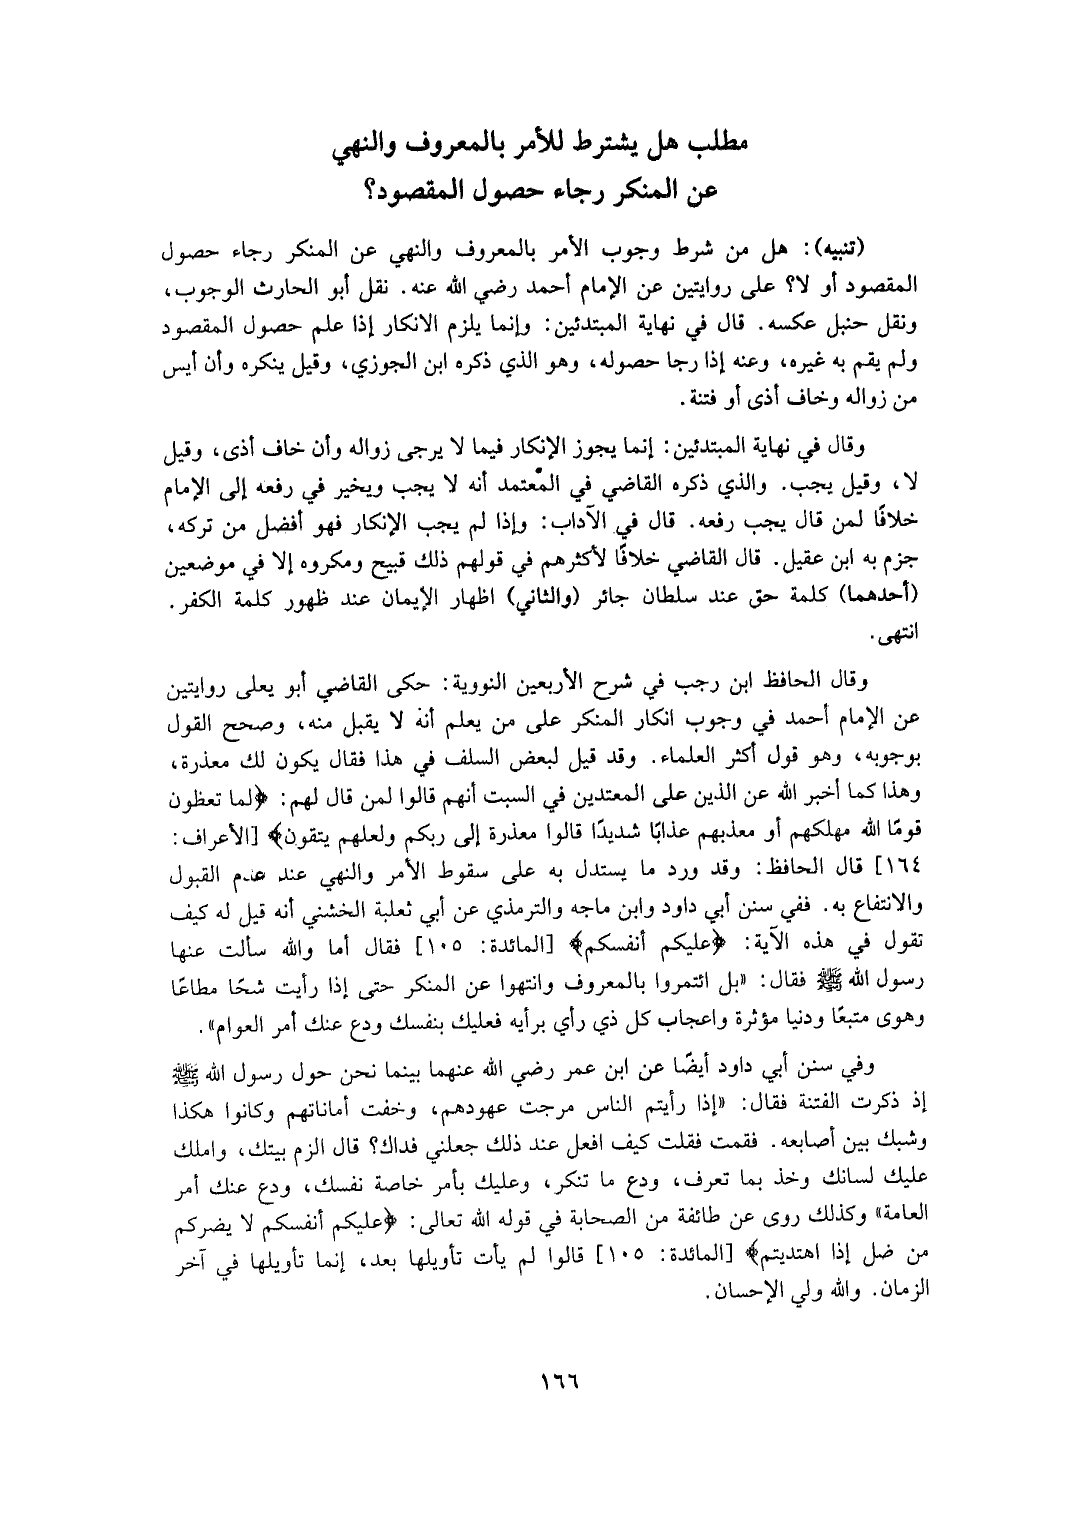 مطلب هل يشترط للأمر بالمعروف والنهي
عن المنكر رجاء حصول المقصود؟
(تنبيه): هل من شرط وجوب الأمر بالمعروف والنهي عن المنكر رجاء حصول
المقصود أو لا؟ على روايتين عن الإمام أحمد رضي الله عنه. نقل أبو الحارث الوجوب،
ونقل حنبل عكسه. قال في نهاية المبتدئين: وإنما يلزم الانكار إذا علم حصول المقصود
ولم يقم به غيره، وعنه إذا رجا حصوله، وهو الذي ذكره ابن الجوزي، وقيل ينكره وأن أيس
من زواله وخاف أذى أو فتنة.
وقال في نهاية المبتدئين: إنما يجوز الإنكار فيما لا يرجى زواله وأن خاف أذى، وقيل
لا، وقيل يجب. والذي ذكره القاضي في المعتمد أنه لا يجب ويخير في رفعه إلى الإمام
خلافًا لمن قال يجب رفعه. قال في الآداب: وإذا لم يجب الإنكار فهو أفضل من تركه،
جزم به ابن عقيل. قال القاضي خلافًا لأكثرهم في قولهم ذلك قبيح ومكروه إلا في موضعين
(أحدهما) كلمة حق عند سلطان جائر (والثاني) اظهار الإيمان عند ظهور كلمة الكفر.
انتهى.
وقال الحافظ ابن رجب في شرح الأربعين النووية: حكى القاضي أبو يعلى روايتين
عن الإمام أحمد في وجوب انكار المنكر على من يعلم أنه لا يقبل منه، وصحح القول
بوجوبه، وهو قول أكثر العلماء. وقد قيل لبعض السلف في هذا فقال يكون لك معذرة،
وهذا كما أخبر الله عن الذين على المعتدين في السبت أنهم قالوا لمن قال لهم: ﴿لما تعظون
قومًا الله مهلكهم أو معذبهم عذابًا شديدًا قالوا معذرة إلى ربكم ولعلهم يتقون﴾ [الأعراف:
١٦٤] قال الحافظ: وقد ورد ما يستدل به على سقوط الأمر والنهي عند عدم القبول
والانتفاع به. ففي سنن أبي داود وابن ماجه والترمذي عن أبي ثعلبة الخشني أنه قيل له كيف
تقول في هذه الآية: ﴿عليكم أنفسكم﴾ [المائدة: ١٠٥] فقال أما والله سألت عنها
رسول الله ﷺ فقال: «بل ائتمروا بالمعروف وانتهوا عن المنكر حتى إذا رأيت شحًا مطاعًا
وهوى متبعًا ودنيا مؤثرة واعجاب كل ذي رأي برأيه فعليك بنفسك ودع عنك أمر العوام».
وفي سنن أبي داود أيضًا عن ابن عمر رضي الله عنهما بينما نحن حول رسول الله ﷺ
إذ ذكرت الفتنة فقال: «إذا رأيتم الناس مرجت عهودهم، وخفت أماناتهم وكانوا هكذا
وشبك بين أصابعه. فقمت فقلت كيف افعل عند ذلك جعلني فداك؟ قال الزم بيتك، واملك
عليك لسانك وخذ بما تعرف، ودع ما تنكر، وعليك بأمر خاصة نفسك، ودع عنك أمر
العامة» وكذلك روى عن طائفة من الصحابة في قوله الله تعالى: ﴿عليكم أنفسكم لا يضركم
من ضل إذا اهتديتم﴾ [المائدة: ١٠٥] قالوا لم يأت تأويلها بعد، إنما تأويلها في آخر
الزمان. والله ولي الإحسان.
١٦٦